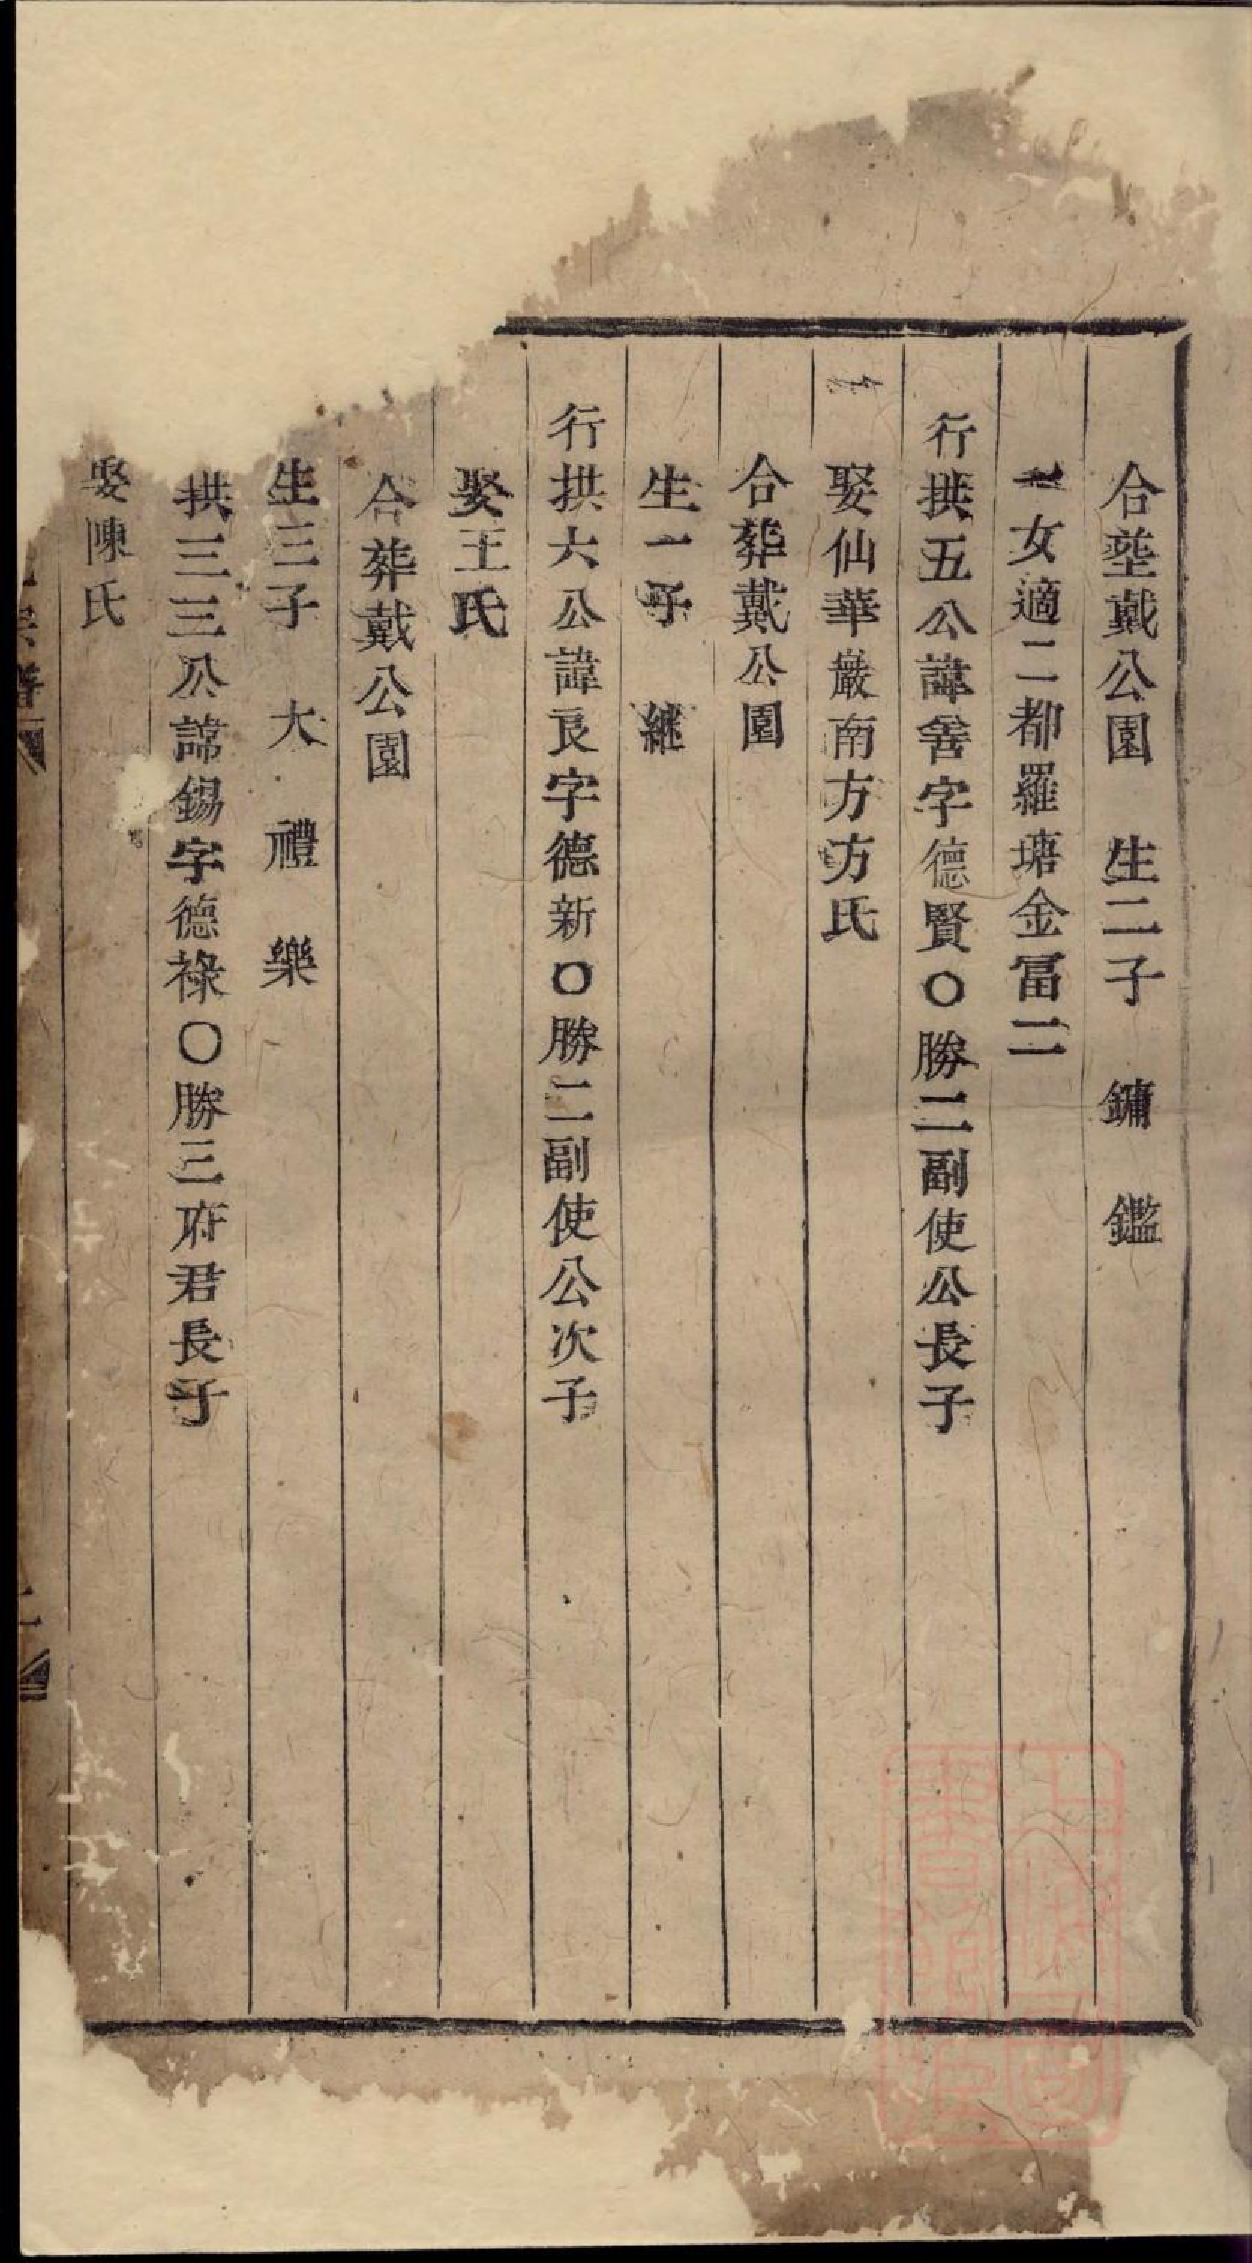 合塟戴公園　生二子　鏞　鑑
一女適二都羅塘金冨二
行拱五公諱善字德賢〇勝二副使公長子
娶仙華嚴南方方氏
合葬戴公園
生一子　継
行拱六公諱良字德新〇勝二副使公次子
娶王氏
合葬戴公園
生三子　大　禮　樂
拱三三公諱錫字德祿〇勝三府君長子
娶陳氏